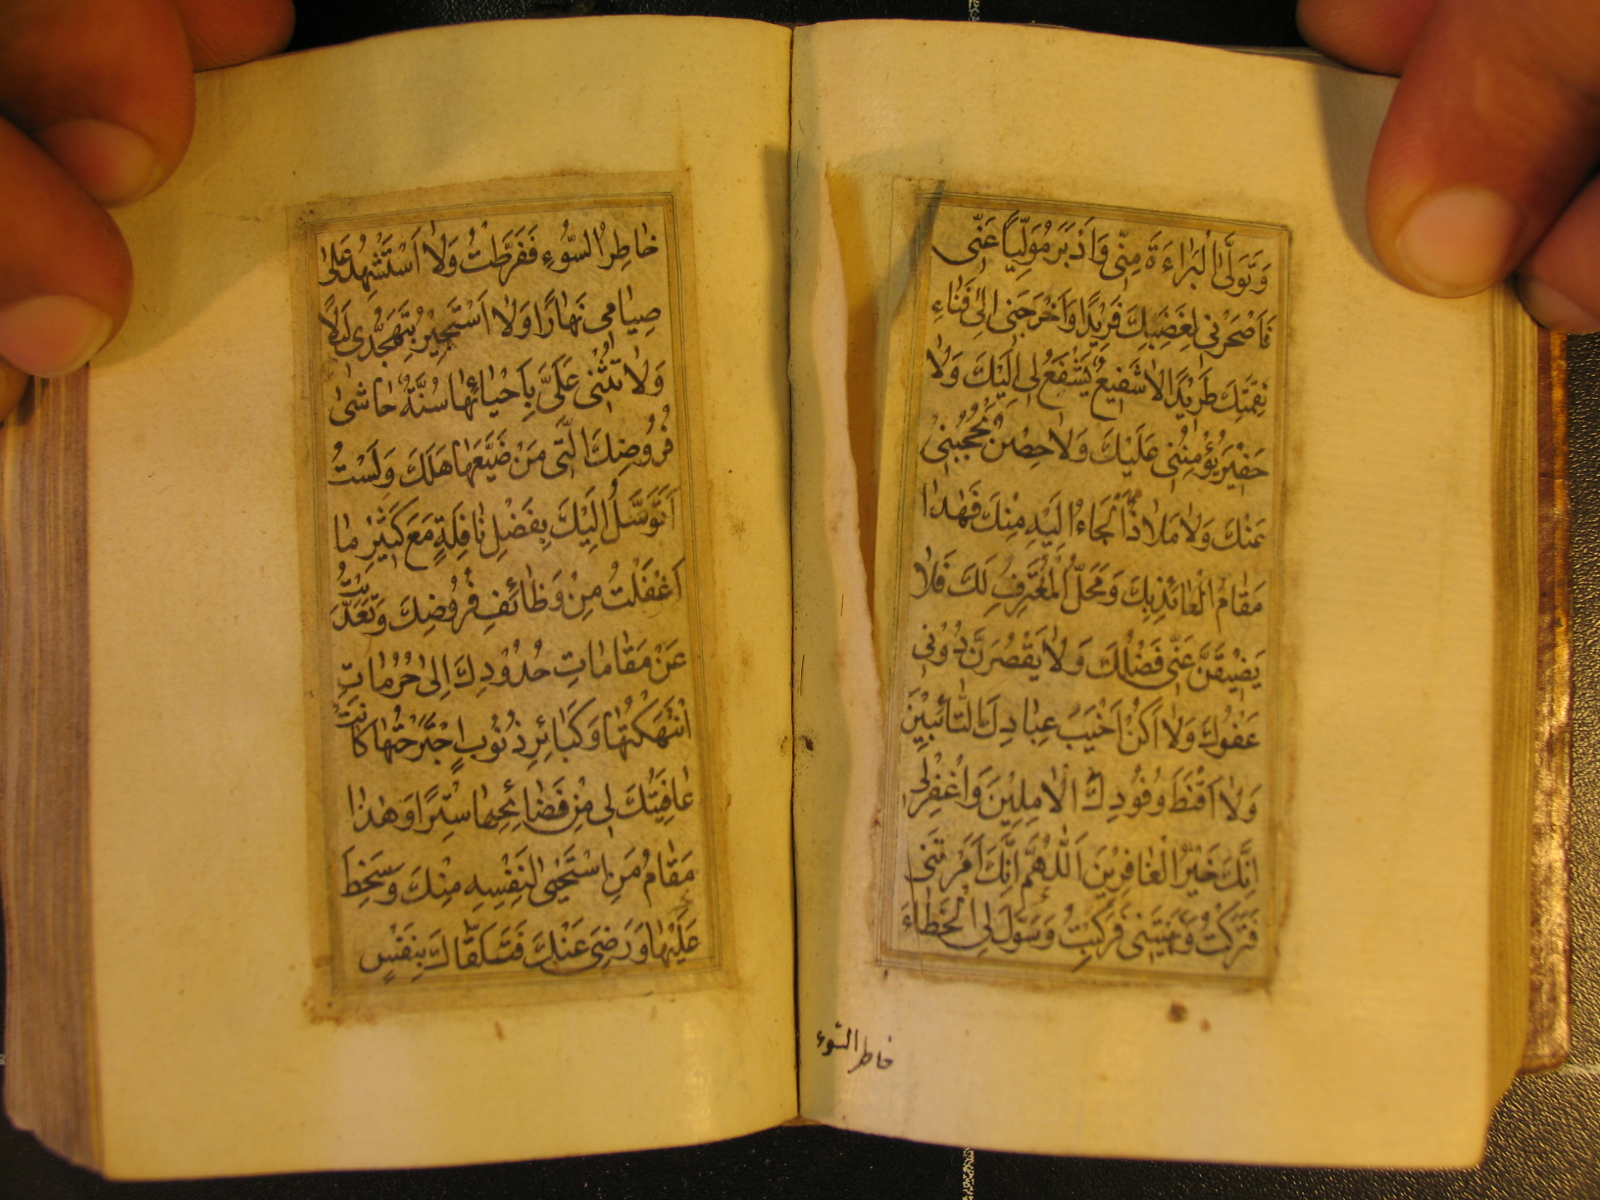 وَتَوَلَّى الْبَرَاءَةَ مِنِّى وَاَدْبَرَ مُوَلِّيًا عَنِّى
فَاَصْحَرَنِى لِغَضَبِكَ فَرِيْدًا وَاَخْرَجَنِى اِلٰى فَنَاءِ
نِقْمَتِكَ طَرِيْدًا لَا شَفِيْعٌ يَشْفَعُ لِى اِلَيْكَ وَلَا
خَفِيْرَ يُؤْمِنُنِى عَلَيْكَ وَلَا حِصْنٌ يَحْجُبُنِى
عَنْكَ وَلَا مَلَاذٌ اَلْجَاءُ اِلَيْهِ مِنْكَ فَهٰذَا
مَقَامُ الْعَائِذِ بِكَ وَمَحَلُّ الْمُعْتَرِفِ لَكَ فَلَا
يَضِيْقَنَّ عَنِّى فَضْلُكَ وَلَا يَقْصُرَنَّ دُوْنِى
عَفْوُكَ وَلَا اَكُنْ اَخْيَبَ عِبَادِكَ التَّائِبِيْنَ
وَلَا اَقْنَطَ وُفُوْدِكَ الْاٰمِلِيْنَ وَاغْفِرْ لِى
اِنَّكَ خَيْرُ الْغَافِرِيْنَ اَللّٰهُمَّ اِنَّكَ اَمَرْتَنِى
فَتَرَكْتُ وَنَهَيْتَنِى فَرَكِبْتُ وَسَوَّلَ لِىَ الْخَطَاءَ
خاطر السّوء
خَاطِرُ السُّوْءِ فَفَرَّطْتُ وَلَا اَسْتَشْهِدُ عَلٰى
صِيَامِى نَهَارًا وَلَا اَسْتَجِيْرُ بِتَهَجُّدِى لَيْلًا
وَلَا تُثْنِى عَلَىَّ بِاِحْيَائِهَا سُنَّةٌ حَاشٰى
فُرُوْضِكَ الَّتِى مَنْ ضَيَّعَهَا هَلَكَ وَلَسْتُ
اَتَوَسَّلُ اِلَيْكَ بِفَضْلِ نَافِلَةٍ مَعَ كَثِيْرِ مَا
اَغْفَلْتُ مِنْ وَظَائِفِ فُرُوْضِكَ وَتَعَدَّيْتُ
عَنْ مَقَامَاتِ حُدُوْدِكَ اِلٰى حُرُمَاتٍ
انْتَهَكْتُهَا وَكَبَائِرِ ذُنُوْبٍ اجْتَرَحْتُهَا كَانَتْ
عَافِيَتُكَ لِى مِنْ فَضَائِحِهَا سِتْرًا وَهٰذَا
مَقَامُ مَنِ اسْتَحْيٰى لِنَفْسِهِ مِنْكَ وَسَخِطَ
عَلَيْهَا وَرَضِىَ عَنْكَ فَتَلَقَّاكَ بِنَفْسٍ